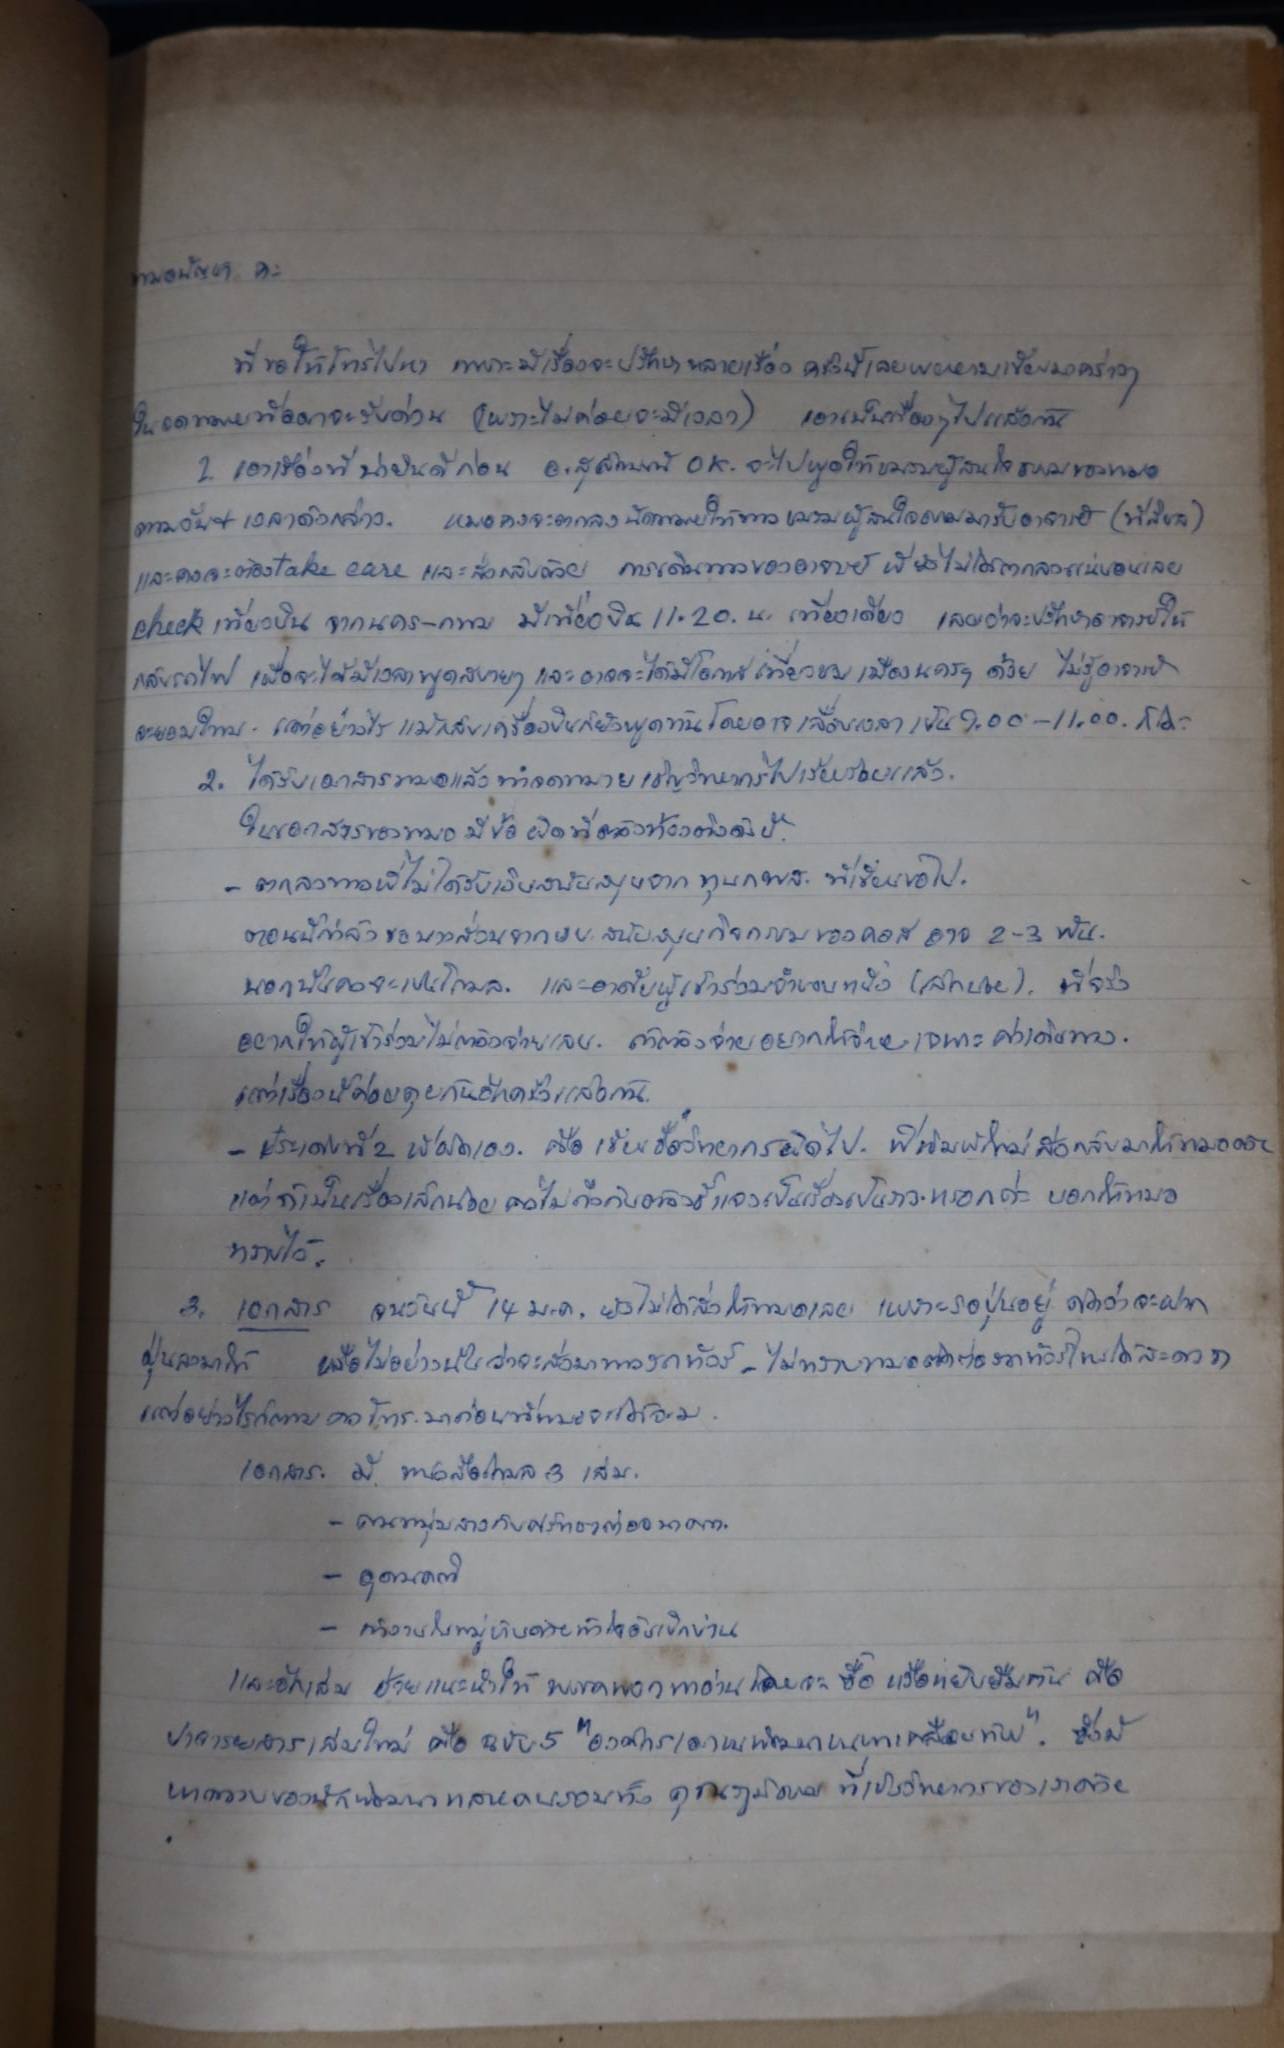 หมอบัญชา คะ
ที่ขอให้โทรไปหา เพราะมีเรื่องจะปรึกษาหลายเรื่อง ครั้งนี้เลยพยายามเขียนคร่าวๆ
ในจดหมายที่อาจจะรีบด่วน (เพราะไม่ค่อยจะมีเวลา) เอาเป็นเรื่องๆ ไปแล้วกัน
1. เอาเรื่องที่น่ายินดีก่อน อ.สุลักษณ์ OK. จะไปพูดให้ชมรมผู้สนใจ ของหมอ
ตามวันเวลาดังกล่าว. หมอคงจะตกลงนัดหมายให้ทางชมรมผู้สนใจ มารับอาจารย์
และคงจะต้อง take care และส่งกลับด้วย การเดินทางของอาจารย์ พี่ยังไม่ได้ตกลงแน่นอนเลย
check เที่ยวบิน จากนคร-กทม มีเที่ยวบิน 11.20 น. เที่ยวเดียว เลยว่าจะปรึกษาอาจารย์ให้
กลับรถไฟ เพื่อจะได้มีเวลาพูดสบายๆ และอาจจะได้มีโอกาสเที่ยวชมเมืองนครฯ ด้วย ไม่รู้อาจารย์
จะยอมไหม. แต่อย่างไร แม้กลับเครื่องบินก็ยังพูดทันโดยอาจเลื่อนเวลาเป็น 9.00-11.00. ก็ได้
2. ได้รับเอกสารหมอแล้ว ทำจดหมายเชิญวิทยากรไปเรียบร้อยแล้ว.
ในเอกสารของหมอ มีข้อผิดที่ต้องท้วงติงดังนี้
- ตกลงทางพี่ไม่ได้รับเงินสนับสนุนจาก ทุน กพส. ที่เขียนขอไป.
ตอนนี้กำลังขอบางส่วนจากงบ สนับสนุนกิจกรรมของคอส อาจ 2-3 พัน.
นอกนั้นคงจะเป็นโกมล. และอาศัยผู้เข้าร่วมจำนวนหนึ่ง (เล็กน้อย). ที่จริง
อยากให้ผู้เข้าร่วมไม่ต้องจ่ายเลย. ถ้าต้องจ่ายอยากให้จ่ายเฉพาะค่าเดินทาง.
แต่เรื่องนี้ค่อยคุยกันอีกครั้งแล้วกัน.
- ประเด็นที่ 2 พี่ผิดเอง. คือ เขียนชื่อวิทยากรผิดไป. พี่ พิมพ์ใหม่ส่งกลับมาให้หมอด้วย
แต่ถ้าเป็นเรื่องเล็กน้อย คงไม่ถึงกับต้องชี้แจงเป็นเรื่องเป็นราวหรอกค่ะ บอกให้หมอ
ทราบไว้.
3. เอกสาร จนวันนี้ 14 ม.ค. ยังไม่ได้ส่งให้หมอเลย เพราะรอปุ๋นอยู่ คิดว่าจะฝาก
ปุ๋นลงมาให้ หรือไม่อย่างนั้นว่าจะส่งมาทางรถทัวร์ - ไม่ทราบหมอติดต่อรถทัวร์ไหนได้สะดวก
แต่อย่างไรก็ตาม คงโทร. มาก่อนที่หมอจะได้ จ.ม.
เอกสาร. มี หนังสือโกมล 3 เล่ม.
- คนหนุ่มสาวกับศรัทธาต่ออนาคต.
- อุดมคติ
- ทำงานในหมู่บ้านด้วยหัวใจอันเบิกบาน
และอีกเล่ม ช่วยแนะนำให้ พรรคพวกหาอ่าน โดยจะ ซื้อ หรือหยิบยืมกัน คือ
ปาจารยสารเล่มใหม่ คือ ฉบับ 5 "องค์กรเอกชนพัฒนาบนทางเคลื่อนทัพ". ซึ่งมี
บทความของนักพัฒนาหลายคนรวมทั้ง ที่เป็นวิทยากรของเราด้วย